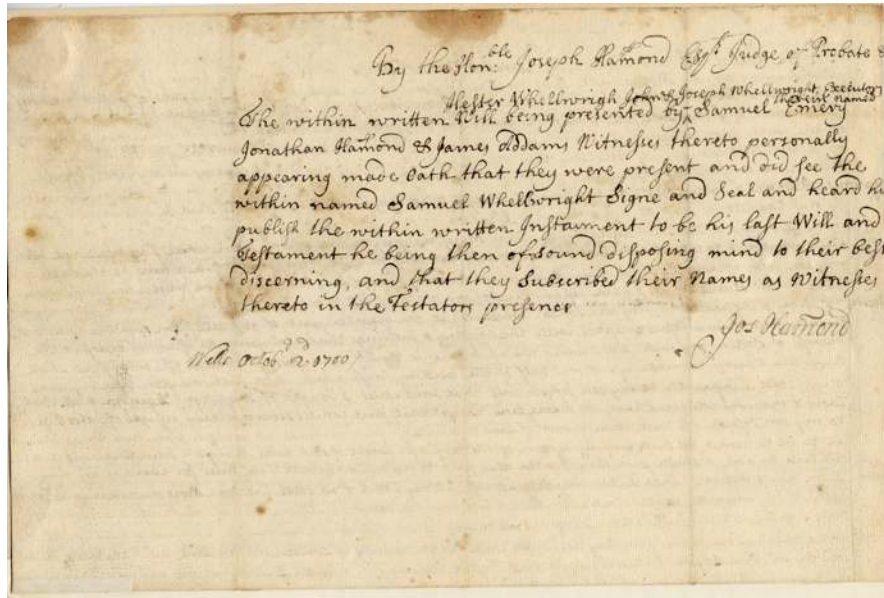 By the Hon:ble Joseph Ham̃ond Esqr. Judge of Probate &
Hester Whellwrigh John & Joseph Whellwright, Executors
therein Named
The within written Will being presented by ^ Samuel Emery
Jonathan Ham̃ond & James Addams Witnesses thereto personally
appearing made Oath that they were present and did see the
within named Samuel Whellwright Signe and Seal and heard hi
publish the within written Instrument to be his last Will and
Testament he being then of sound disposing mind to their best
discerning, and that they Subscribed their Names as Witnesses
thereto in the Testators presence
Jos Ham̃ond
Wells Octobr 2d 1700